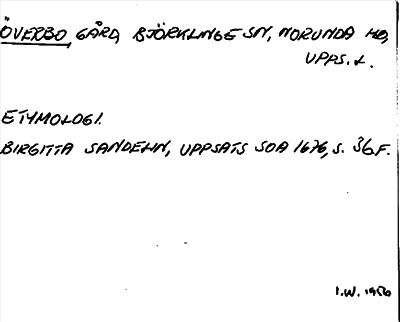 ÖVERBO GÅRD, BJÖRKLINGE SN, NORUNDA HD,
UPPS. L.
ETYMOLOGI.
BIRGITTA SANDELIN, UPPSATS SOA 1676, S. 36 F.
I.W. 1956